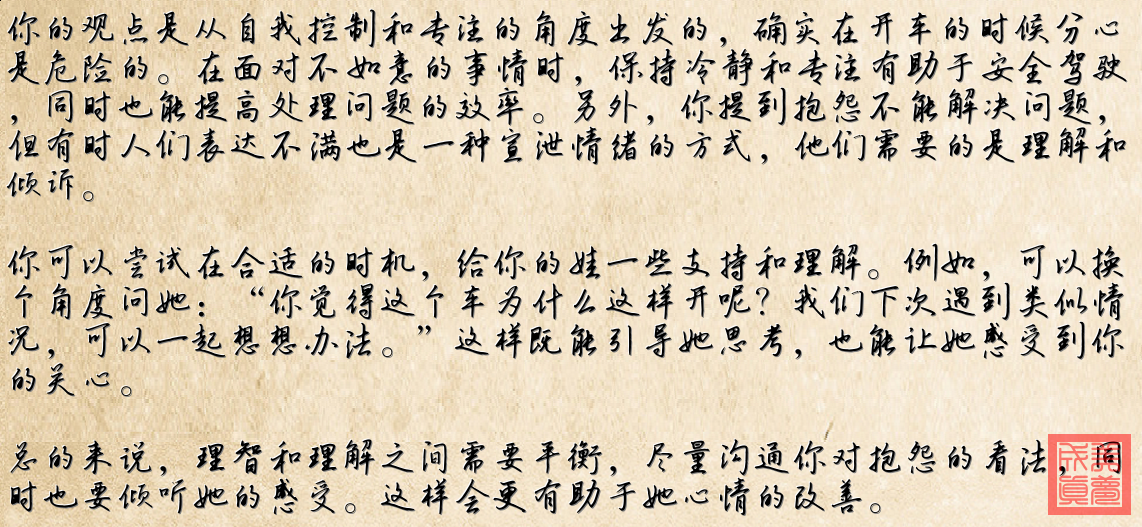 你的观点是从自我控制和专注的角度出发的，确实在开车的时候分心
是危险的。在面对不如意的事情时，保持冷静和专注有助于安全驾驶
，同时也能提高处理问题的效率。另外，你提到抱怨不能解决问题，
但有时人们表达不满也是一种宣泄情绪的方式，他们需要的是理解和
倾诉。
你可以尝试在合适的时机，给你的娃一些支持和理解。例如，可以换
个角度问她：“你觉得这个车为什么这样开呢？我们下次遇到类似情
况，可以一起想想办法。”这样既能引导她思考，也能让她感受到你
的关心。
总的来说，理智和理解之间需要平衡，尽量沟通你对抱怨的看法，同
时也要倾听她的感受。这样会更有助于她心情的改善。